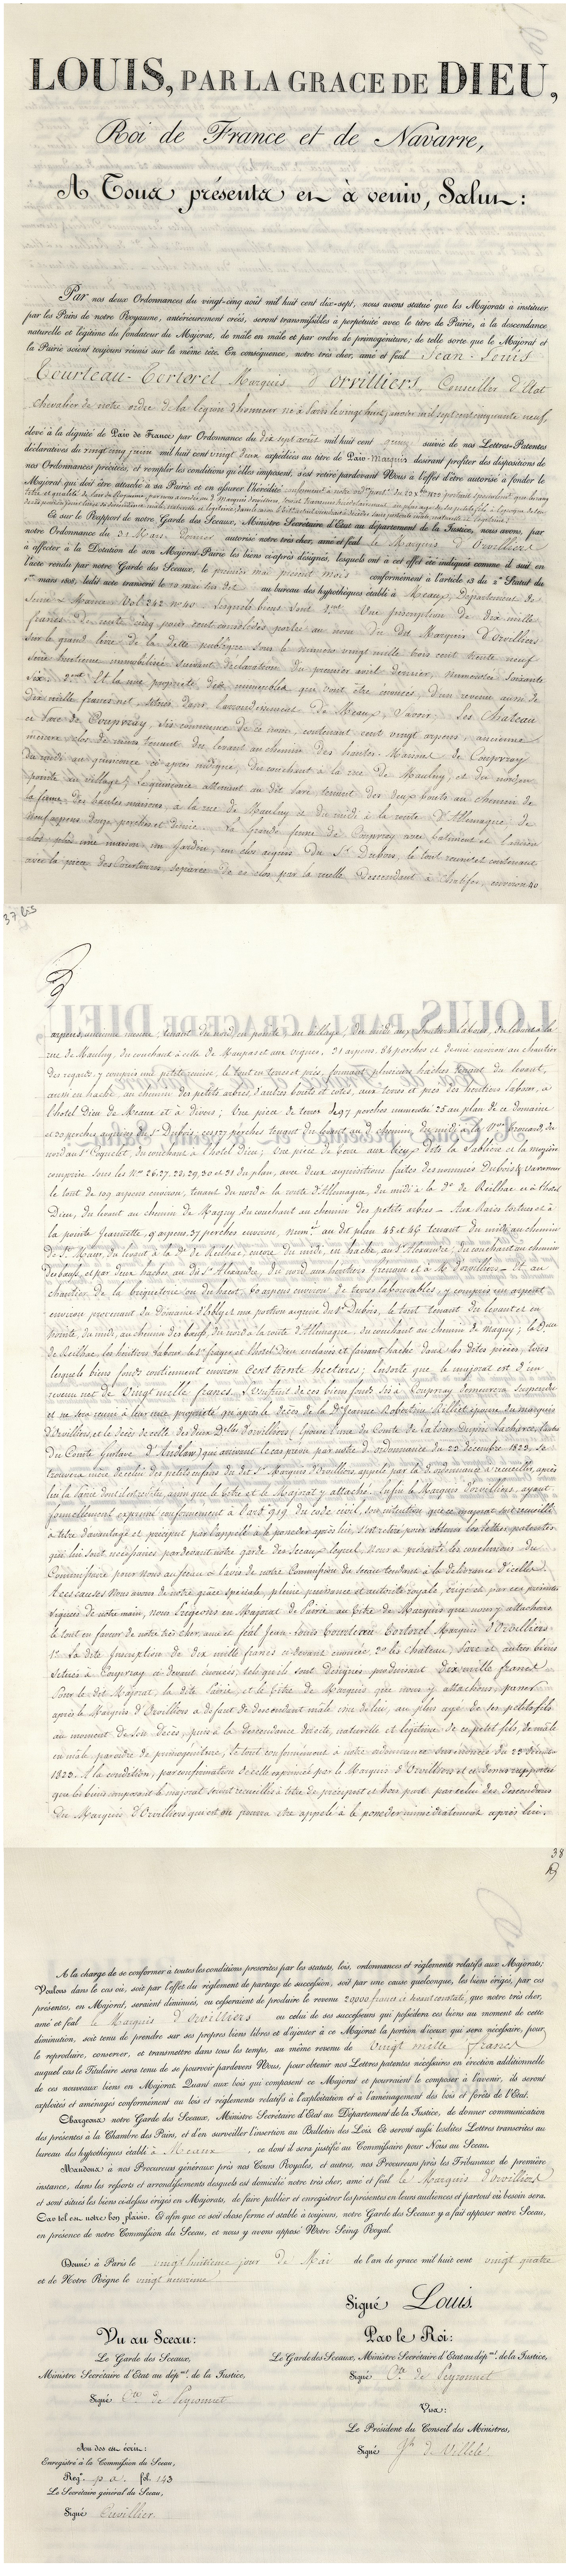 LOUIS, PAR LA GRACE DE DIEU,
Roi de France et de Navarre,
A Tous présents et à venir, Salut:
Par nos deux Ordonnances du vingt-cinq août mil huit cent dix-sept, nous avons statué que les Majorats à instituer
par les Pairs de notre Royaume, antérieurement créés, seront transmissibles à perpétuité avec le titre de Pairie, à la descendance
naturelle et légitime du fondateur du Majorat, de mâle en mâle et par ordre de primogéniture; de telle sorte que le Majorat et
la Pairie soient toujours réunis sur la même tête. En conséquence, notre très cher, amé et féal Jean-Louis
Tourteau-Tortorel Marquis d'Orvilliers, Conseiller d'Etat
chevalier de notre ordre de la légion d'honneur né à Paris le vingt huit janvier mil sept cent cinquante neuf,
élevé à la dignité de Pair de France par Ordonnance du dix sept août mil huit cent quinze suivie de nos Lettres-Patentes
déclaratives du vingt cinq juin mil huit cent vingt deux expédiées au titre de Pair-Marquis désirant profiter des dispositions de
nos Ordonnances précitées, et remplir les conditions qu'elles imposent, s'est retiré pardevant Nous à l'effet d'être autorisé à fonder le
Majorat qui doit être attaché à sa Pairie et en assurer l'hérédité conformément à notre
Et sur le Rapport de notre Garde des Sceaux, Ministre Secrétaire d'Etat au département de la Justice, nous avons, par
notre Ordonnance du 31 Mars dernier autorisé notre très cher, amé et féal le Marquis d'Orvilliers
à affecter à la Dotation de son Majorat-Pairie les biens ci-après désignés, lesquels ont à cet effet été indiqués comme il suit en
l'acte rendu par notre Garde des Sceaux, le premier mai présent mois conformément à l'article 13 du 2e Statut du
1er mars 1808, ledit acte transcrit le 10 mai au bureau des hypothèques établi à Meaux, Département de
Seine & Marne Vol 242 n° 40. Lesquels biens sont 1ent Une Inscription de dix mille
francs de rente cinq pour cent consolidés portée au nom du dit Marquis D'Orvilliers
sur le grand livre de la dette publique sous le numéro vingt mille trois cent trente neuf
série huitième immobilisée suivant déclaration du premier avril dernier, numérotée soixante
six. 2ent Et la nue propriété des immeubles qui vont être énoncés, d'un revenu aussi de
dix mille francs net, situés dans l'arrondissement de Meaux, Savoir: Les Château
et Parc de Coupvray, sis commune de ce nom, contenant cent vingt arpens, ancienne
mesure, clos de murs tenant du levant au chemin des hautes-Maisons de Coupvray
du midi au quinconce ci-après indiqué, du couchant à la rue de Maulny, et du nord en
pointe au village; Le quinconce attenant au dit Parc tenant des deux bouts au chemin de
la ferme des hautes maisons, à la rue de Maulny et du midi à la route d'Allemagne, de
neuf arpens douze perches et demie. La Grande ferme de Coupvray avec bâtiment et l'ancien
clos, plus une maison, un jardin, un clos acquis du Sr Dubois, le tout réuni et contenant
avec la pièce des Courtours, séparée de ce clos par la ruelle Descendant à Chalifer, environ 40
37 bis
arpens, ancienne mesure, tenant du nord en pointe au village, du midi aux héritiers Labour, du levant à la
rue de Maulny, du couchant à celle de Maupas et aux vignes; 31 arpens, 84 perches et demie environ au chantier
des regards, y compris une petite remise, le tout en terres et prés, formant plusieurs haches tenant du levant,
aussi en hache, au chemin des petits arbres, d'autres bouts et côtés, aux terres et prés des héritiers Labour, à
l'hotel Dieu de Meaux et à divers; Une pièce de terre de 97 perches numérotée 25 au plan de ce domaine
et 20 perches acquises du Sr Dubois, ces 127 perches tenant du levant au d. chemin, du midi à la Vve Fromard, du
nord au Sr Coquelet, du couchant à l'hotel Dieu; Une pièce de terre aux lieux dits la Sablière et la moyenne
comprise sous les Nos 26.27.28, 29, 30 et 31 du plan, avec deux acquisitions faites des nommés Dubois & Varenne
le tout de 109 arpens environ, tenant du nord à la route d'Allemagne, du midi à la de de Reilhac et à l'hotel
Dieu, du levant au chemin de Magny du couchant au chemin des petits arbres — Aux Raies tortues et à
la pointe Jeannette, 9 arpens, 37 perches environ, num.s au dit plan 45 et 46 tenant du midi au chemin
de St Maur, du levant à la de de Reilhac, encore du midi, en hache, au Sr Alexandre, du couchant au chemin
des boeufs, et par deux haches, au dit Sr Alexandre, du nord aux héritiers Grenon et à M. d'Orvilliers — Et au
chantier de la briqueterie ou du hazet, 60 arpens environ de terres labourables, y compris un arpent
environ provenant du domaine d'Esbly et une portion acquise du Sr Dubois, le tout tenant du levant et en
pointe, du midi, au chemin des boeufs, du nord à la route d'Allemagne, du couchant au chemin de Magny; la De
de Reilhac les héritiers Labour, le Sr Frager et l'hotel Dieu enclavés et faisant hache dans les dites pièces; tous
lesquels biens fonds contiennent environ cent trente hectares; Ensorte que le majorat est d'un
revenu net de vingt mille francs. L'usufruit de ces biens fonds sis à Coupvray demeurera suspendu
et ne sera réuni à leur nue propriété qu'après le décès de la De Jeanne Robertine Rilliet épouse du marquis
d'Orvilliers, et le décès de celle des deux Delles d'Orvilliers (épouse l'une du Comte de la Tour Dupin Lacharce, l'autre
du Comte Gustave d'Andlau) qui arrivant le cas prévu par notre d. ordonnance du 23 décembre 1823. Se
trouvera mère de celui des petits enfans du dit Sr Marquis d'Orvilliers, appelé par la d. ordonnance à recueillir, après
lui la Pairie dont il est revêtu, ainsi que le titre et le Majorat y attachés. Enfin le Marquis d'Orvilliers, ayant
formellement exprimé conformément à l'art. 919 du code civil, son intention que ce majorat soit recueilli
à titre d'avantage et préciput par l'appelé à le posséder après lui, s'est retiré pour obtenir les lettres patentes
qui lui sont nécessaires pardevant notre garde des Sceaux lequel, Nous a présenté les conclusions du
Commissaire pour Nous au Sceau et l'avis de notre Commission du Sceau tendant à la délivrance d'icelles.
A ces causes Nous avons de notre grâce spéciale, pleine puissance et autorité royale, érigé et par ces présentes
signées de notre main, nous Erigeons en Majorat de Pairie au titre de Marquis que nous y attachons
le tout en faveur de notre très cher, amé et féal Jean-Louis Tourteau Tortorel Marquis d'Orvilliers.
1o La dite Inscription de dix mille francs ci-devant énoncée, 2o les Château, Parc et autres biens
situés à Coupvray ci-devant énoncés, tels qu'ils sont désignés produisant dix mille francs
Pour le dit Majorat, la dite Pairie et le titre de Marquis que nous y attachons, passer
après le Marquis d'Orvilliers à défaut de descendant mâle issu de lui, au plus agé de ses petits fils
au moment de son décès, puis à la descendance directe, naturelle et légitime de ce petit fils, de mâle
en mâle, par ordre de primogéniture, le tout conformément à notre ordonnance sus énoncée du 23 décembre
1823. A la condition, par confirmation de celle exprimée par le Marquis d'Orvilliers et ci-dessus rapportée
que les biens composant le majorat seront recueillis à titre de préciput et hors part par celui des descendans
du Marquis d'Orvilliers qui est ou pourra être appelé à le posséder immédiatement après lui.
38
A la charge de se conformer à toutes les conditions prescrites par les statuts, lois, ordonnances et règlements relatifs aux Majorats;
Voulons dans le cas où, soit par l'effet du règlement de partage de succession, soit par une cause quelconque, les biens érigés, par ces
présentes, en Majorat, seraient diminués, ou cesseraient de produire le revenu 20000 francs ci-dessus constaté, que notre très cher,
amé et féal le Marquis d'Orvilliers ou celui de ses successeurs qui possédera ces biens au moment de cette
diminution, soit tenu de prendre sur ses propres biens libres et d'ajouter à ce Majorat la portion d'iceux qui sera nécessaire, pour
le reproduire, conserver, et transmettre dans tous les temps, au même revenu de vingt mille francs
auquel cas le Titulaire sera tenu de se pourvoir pardevers Nous, pour obtenir nos Lettres patentes nécessaires en érection additionnelle
de ces nouveaux biens en Majorat. Quant aux bois qui composent ce Majorat et pourraient le composer à l'avenir, ils seront
exploités et aménagés conformément au lois et règlements relatifs à l'exploitation et à l'aménagement des bois et forêts de l'Etat.
Chargeons notre Garde des Sceaux, Ministre Secrétaire d'Etat au Département de la Justice, de donner communication
des présentes à la Chambre des Pairs, et d'en surveiller l'insertion au Bulletin des Lois. Et seront aussi lesdites Lettres transcrites au
bureau des hypothèques établi à Meaux ce dont il sera justifié au Commissaire pour Nous au Sceau.
Mandons à nos Procureurs généraux près nos Cours Royales, et autres, nos Procureurs près les Tribunaux de première
instance, dans les ressorts et arrondissements desquels est domicilié notre très cher, amé et féal le Marquis d'Orvilliers
et sont situés les biens ci-dessus érigés en Majorats, de faire publier et enregistrer les présentes en leurs audiences et partout où besoin sera.
Car tel est notre bon plaisir. Et afin que ce soit chose ferme et stable à toujours, notre Garde des Sceaux y a fait apposer notre Sceau,
en présence de notre Commission du Sceau, et nous y avons apposé Notre Seing Royal.
Donné à Paris le vingt huitième jour de Mai de l'an de grace mil huit cent vingt quatre
et de Notre Règne le vingt neuvième
Signé Louis.
Vu au Sceau:
Le Garde des Sceaux,
Ministre Secrétaire d'Etat au dépmt. de la Justice,
Signé Cte de Peyronnet
Par le Roi:
Le Garde des Sceaux, Ministre Secrétaire d'Etat au dépmt. de la Justice,
Signé Cte de Peyronnet
Visa:
Le Président du Conseil des Ministres,
Signé Jh de Villèle
Au dos est écrit:
Enregistré à la Commission du Sceau,
Regre p a. fol. 143
Le Secrétaire général du Sceau,
Signé Cuvillier.